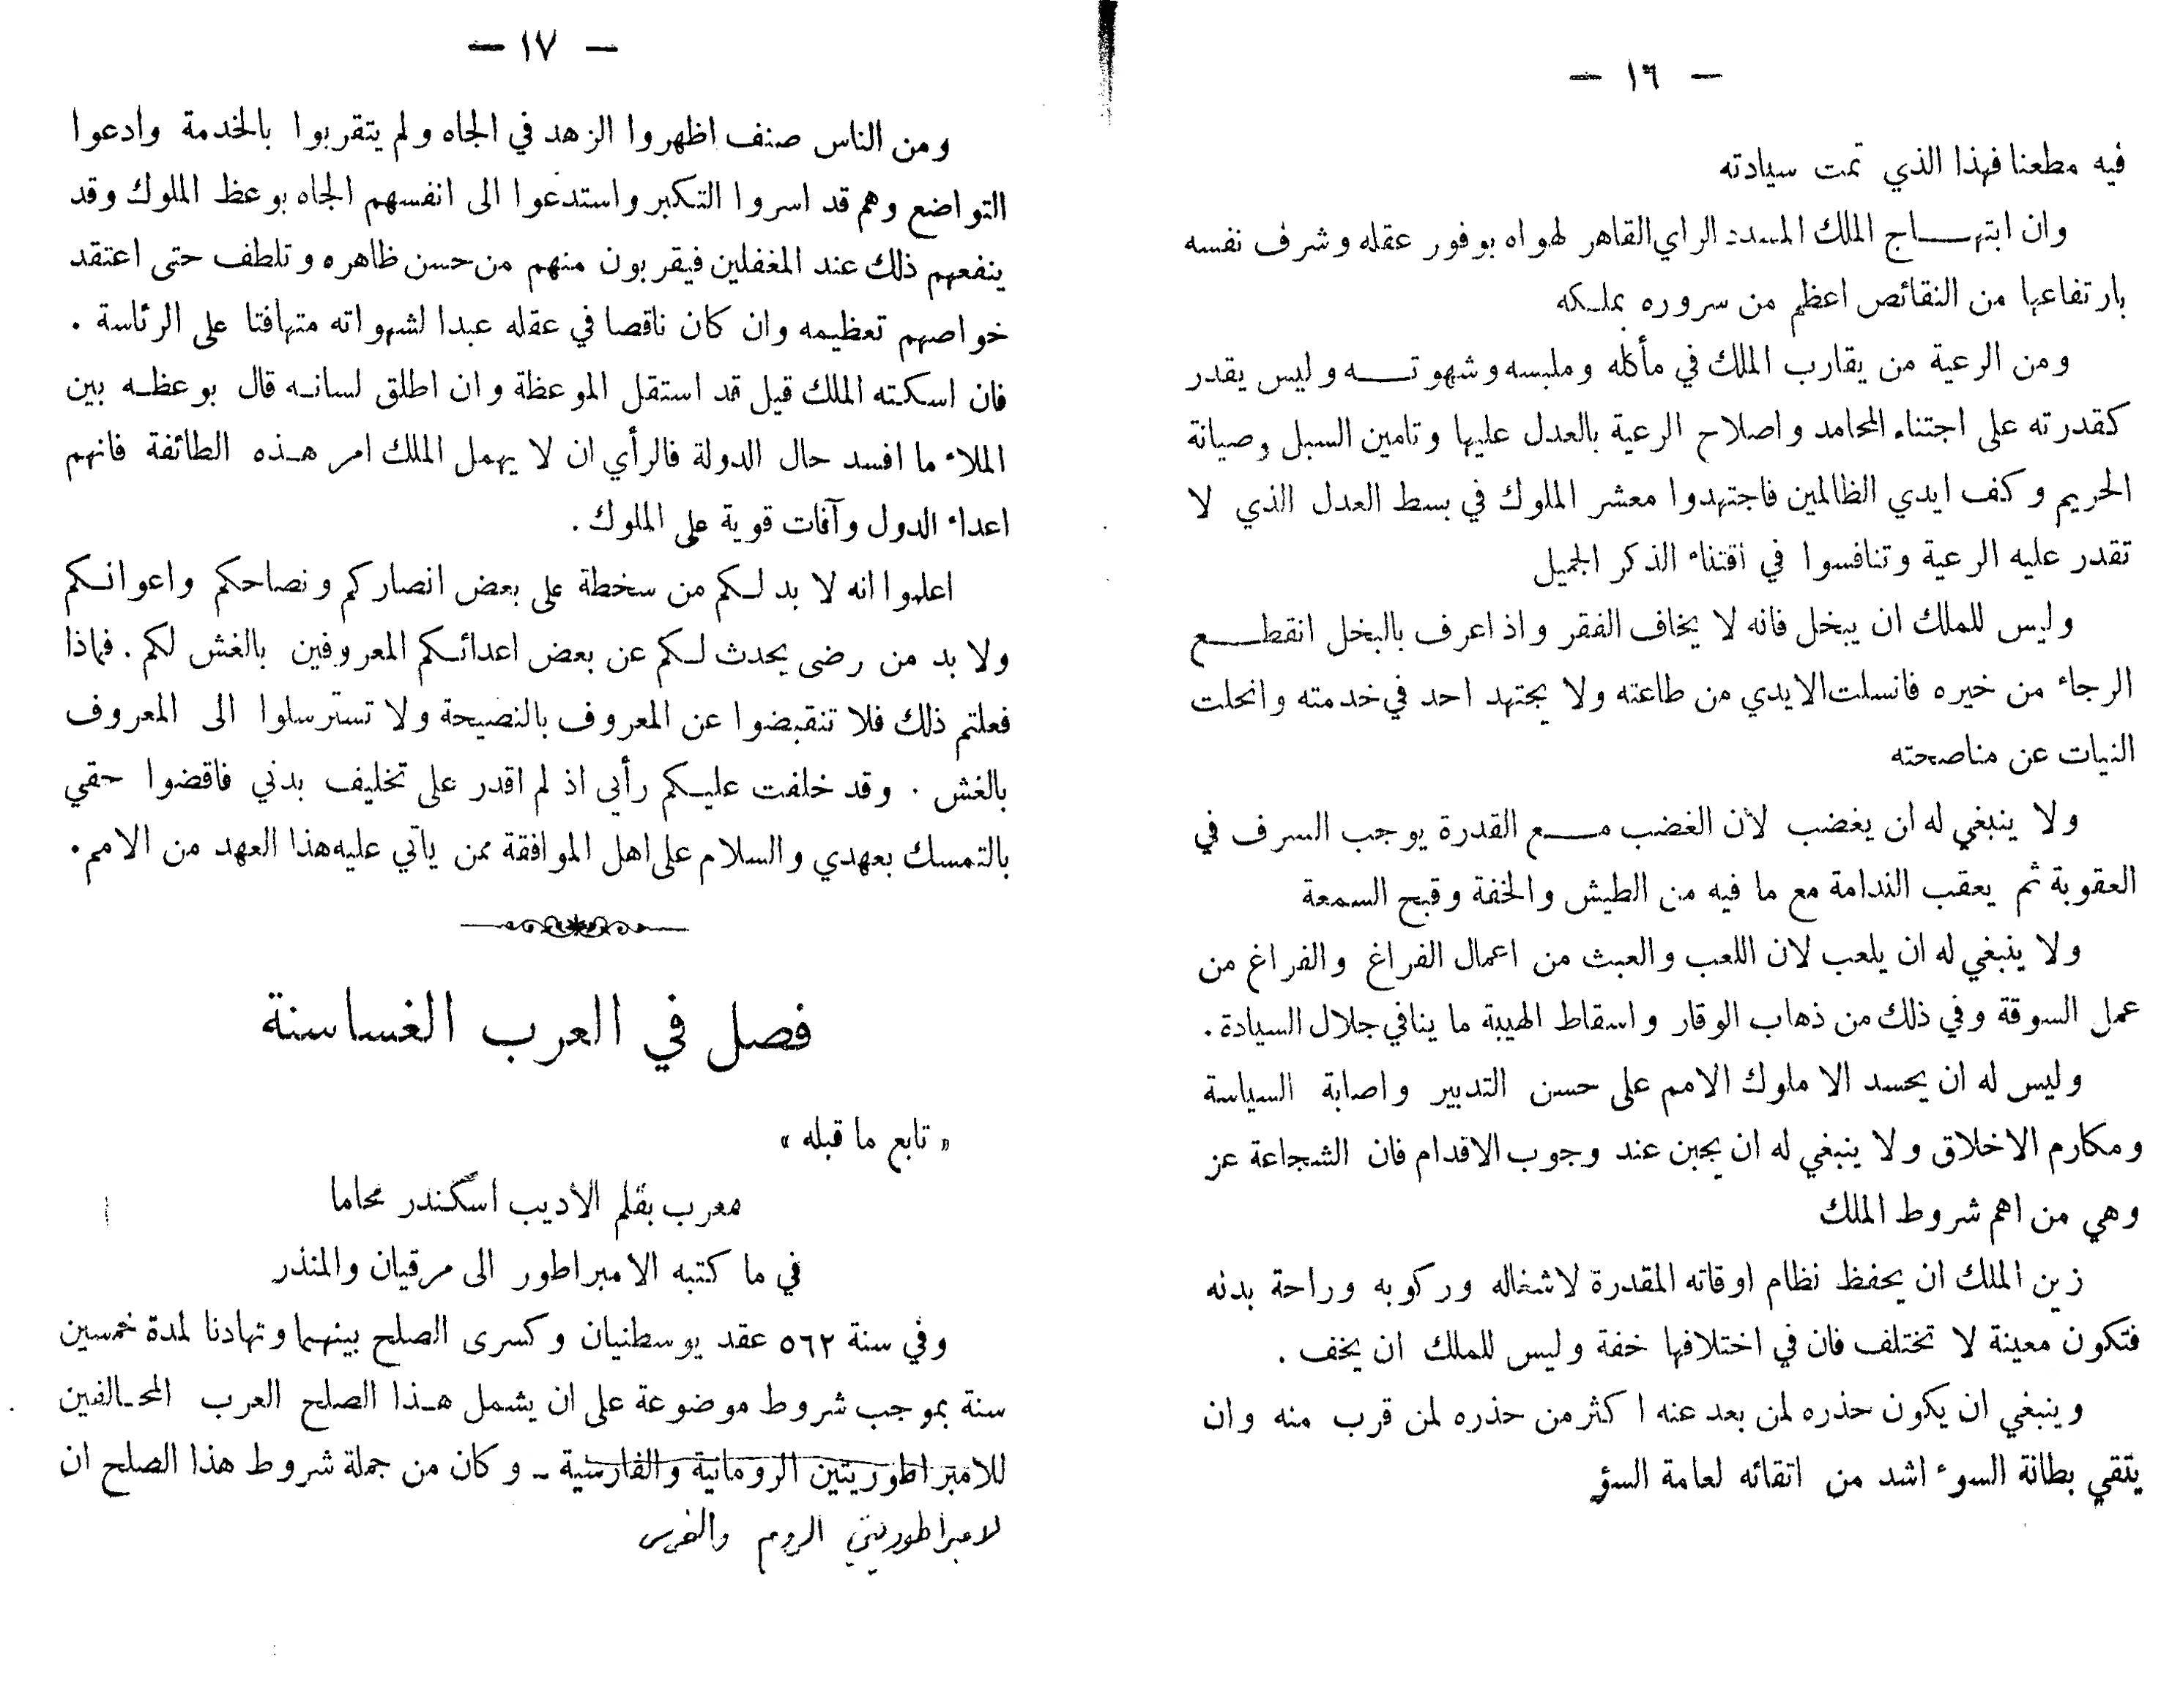 — ١٦ —
فيه مطعنا فهذا الذي تمت سيادته
وان ابتهـــاج الملك المسدد الراي القاهر لهواه بوفور عقله وشرف نفسه
بارتفاعها من النقائص اعظم من سروره بملكه
ومن الرعية من يقارب الملك في مأكله وملبسه وشهوتـــه وليس يقدر
كقدرته على اجتناء المحامد واصلاح الرعية بالعدل عليها وتامين السبل وصيانة
الحريم وكف ايدي الظالمين فاجتهدوا معشر الملوك في بسط العدل الذي لا
تقدر عليه الرعية وتنافسوا في اقتناء الذكر الجميل
وليس للملك ان يبخل فانه لا يخاف الفقر واذا عرف بالبخل انقطـــع
الرجاء من خيره فانسلت الايدي من طاعته ولا يجتهد احد في خدمته وانحلت
النيات عن مناصحته
ولا ينبغي له ان يغضب لأن الغضب مـــع القدرة يوجب السرف في
العقوبة ثم يعقب الندامة مع ما فيه من الطيش والخفة وقبح السمعة
ولا ينبغي له ان يلعب لان اللعب والعبث من اعمال الفراغ والفراغ من
عمل السوقة وفي ذلك من ذهاب الوقار واسقاط الهيبة ما ينافي جلال السيادة .
وليس له ان يحسد الا ملوك الامم على حسن التدبير واصابة السياسة
ومكارم الاخلاق ولا ينبغي له ان يجبن عند وجوب الاقدام فان الشجاعة عز
وهي من اهم شروط الملك
زين الملك ان يحفظ نظام اوقاته المقدرة لاشغاله وركوبه وراحة بدنه
فتكون معينة لا تختلف فان في اختلافها خفة وليس للملك ان يخف .
وينبغي ان يكون حذره لمن بعد عنه اكثر من حذره لمن قرب منه وان
يتقي بطانة السوء اشد من اتقائه لعامة السؤ
— ١٧ —
ومن الناس صنف اظهروا الزهد في الجاه ولم يتقربوا بالخدمة وادعوا
التواضع وهم قد اسروا التكبر واستدعوا الى انفسهم الجاه بوعظ الملوك وقد
ينفعهم ذلك عند المغفلين فيقربون منهم من حسن ظاهره وتلطف حتى اعتقد
خواصهم تعظيمه وان كان ناقصا في عقله عبدا لشهواته متهافتا على الرئاسة .
فان اسكته الملك قيل قد استقل الموعظة وان اطلق لسانـه قال بوعظـه بين
الملاء ما افسد حال الدولة فالرأي ان لا يهمل الملك امر هـذه الطائفة فانهم
اعداء الدول وآفات قوية على الملوك .
اعلموا انه لا بد لـكم من سخطة على بعض انصاركم ونصاحكم واعوانـكم
ولا بد من رضى يحدث لـكم عن بعض اعدائـكم المعروفين بالغش لكم . فاذا
فعلتم ذلك فلا تنقبضوا عن المعروف بالنصيحة ولا تسترسلوا الى المعروف
بالغش . وقد خلفت عليـكم رأيي اذ لم اقدر على تخليف بدني فاقضوا حقي
بالتمسك بعهدي والسلام على اهل الموافقة ممن ياتي عليه هذا العهد من الامم .
فصل في العرب الغساسنة
« تابع ما قبله »
معرب بقلم الأديب اسكندر محاما
في ما كتبه الامبراطور الى مرقيان والمنذر
وفي سنة ٥٦٢ عقد يوسطنيان وكسرى الصلح بينهما وتهادنا لمدة خمسين
سنة بموجب شروط موضوعة على ان يشمل هـذا الصلح العرب المحـالفين
للامبراطوريتين الرومانية والفارسية ـ وكان من جملة شروط هذا الصلح ان
لامبراطوريتي الروم والفرس